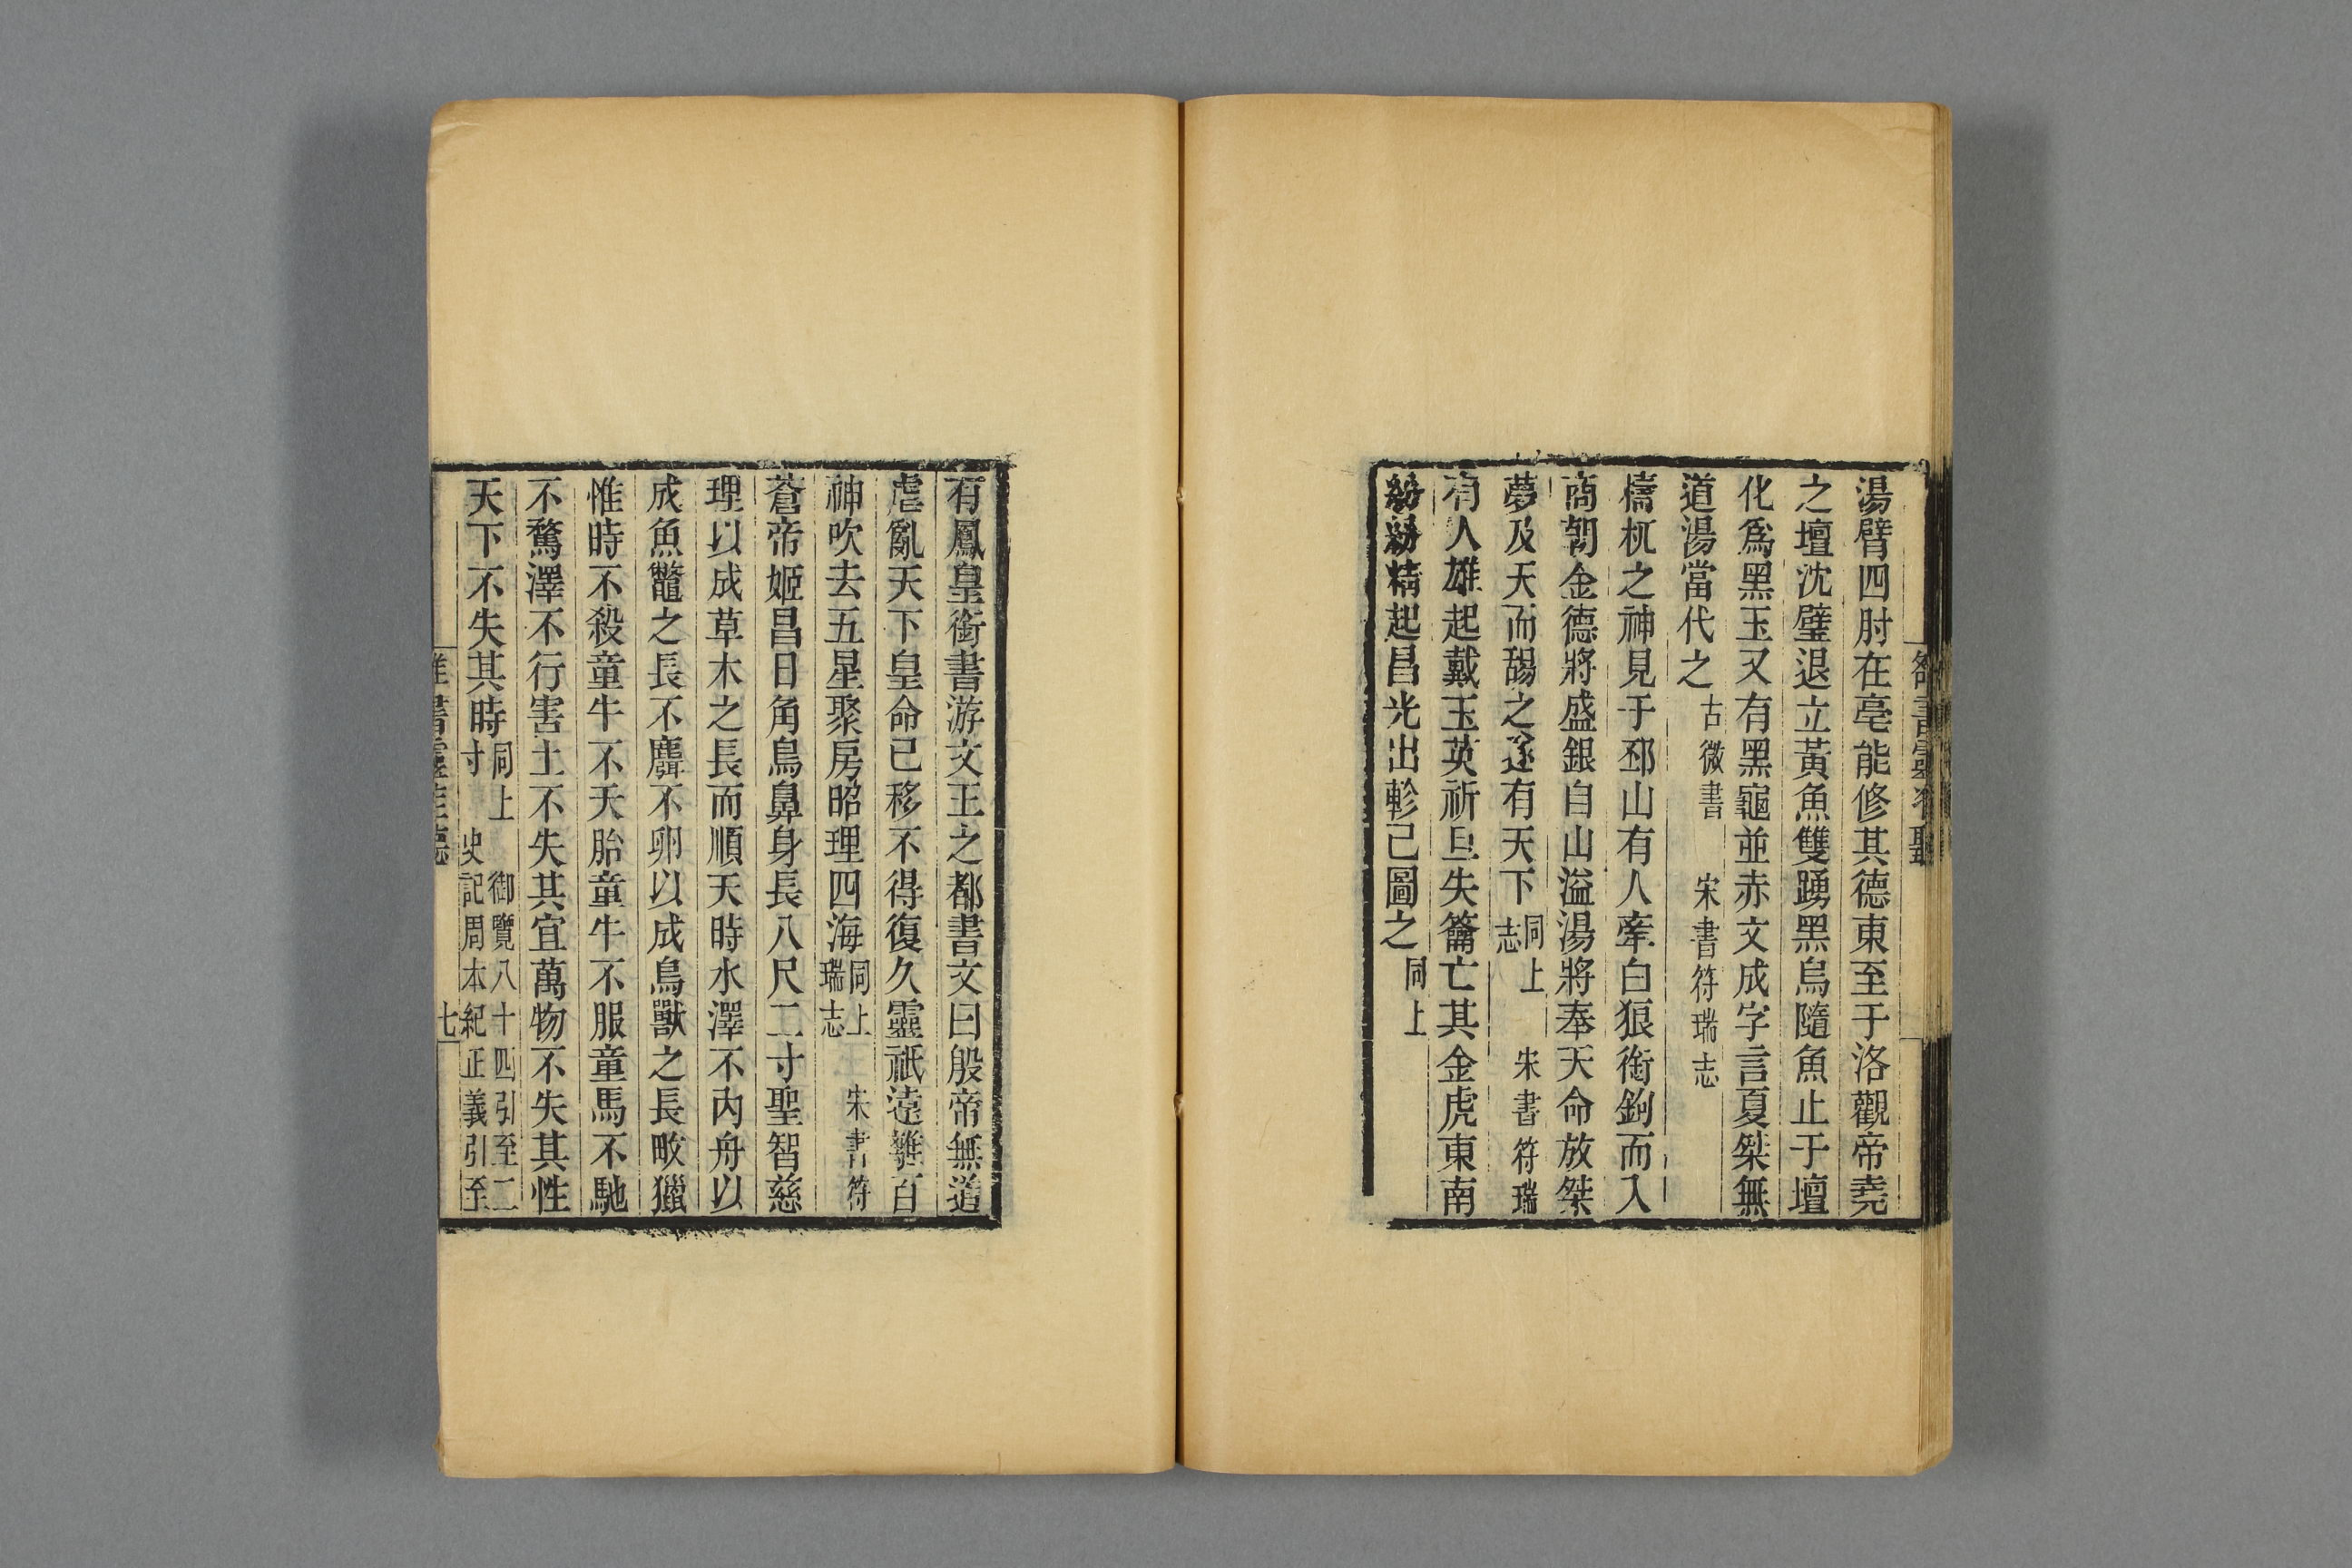 湯臂四肘在亳能修其德東至于洛觀帝堯
之壇沈璧退立黃魚雙踴黑烏隨魚止于壇
化爲黑玉又有黑龜並赤文成字言夏桀無
道湯當代之 古微書 宋書符瑞志
檮杌之神見于邳山有人牽白狼銜鉤而入
商朝金德將盛銀自山溢湯將奉天命放桀
夢及天而䑛之遂有天下 同上 宋書符瑞志
有人雄起戴玉英祈旦失籥亡其金虎東南
紛紛精起昌光出軫己圖之 同上
有鳳皇銜書游文王之都書文曰殷帝無道
虐亂天下皇命已移不得復久靈祇遠離百
神吹去五星聚房昭理四海 同上 宋書符瑞志
蒼帝姬昌日角鳥鼻身長八尺二寸聖智慈
理以成草木之長而順天時水澤不內舟以
成魚鼈之長不麛不卵以成鳥獸之長畋獵
惟時不殺童牛不夭胎童牛不服童馬不馳
不騖澤不行害土不失其宜萬物不失其性
天下不失其時 同上 御覽八十四引至二寸 史記周本紀正義引至
七